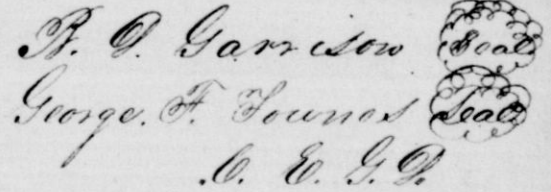 B. D. Garrison Seal
George. F. Townes Seal
C. E. G. D.